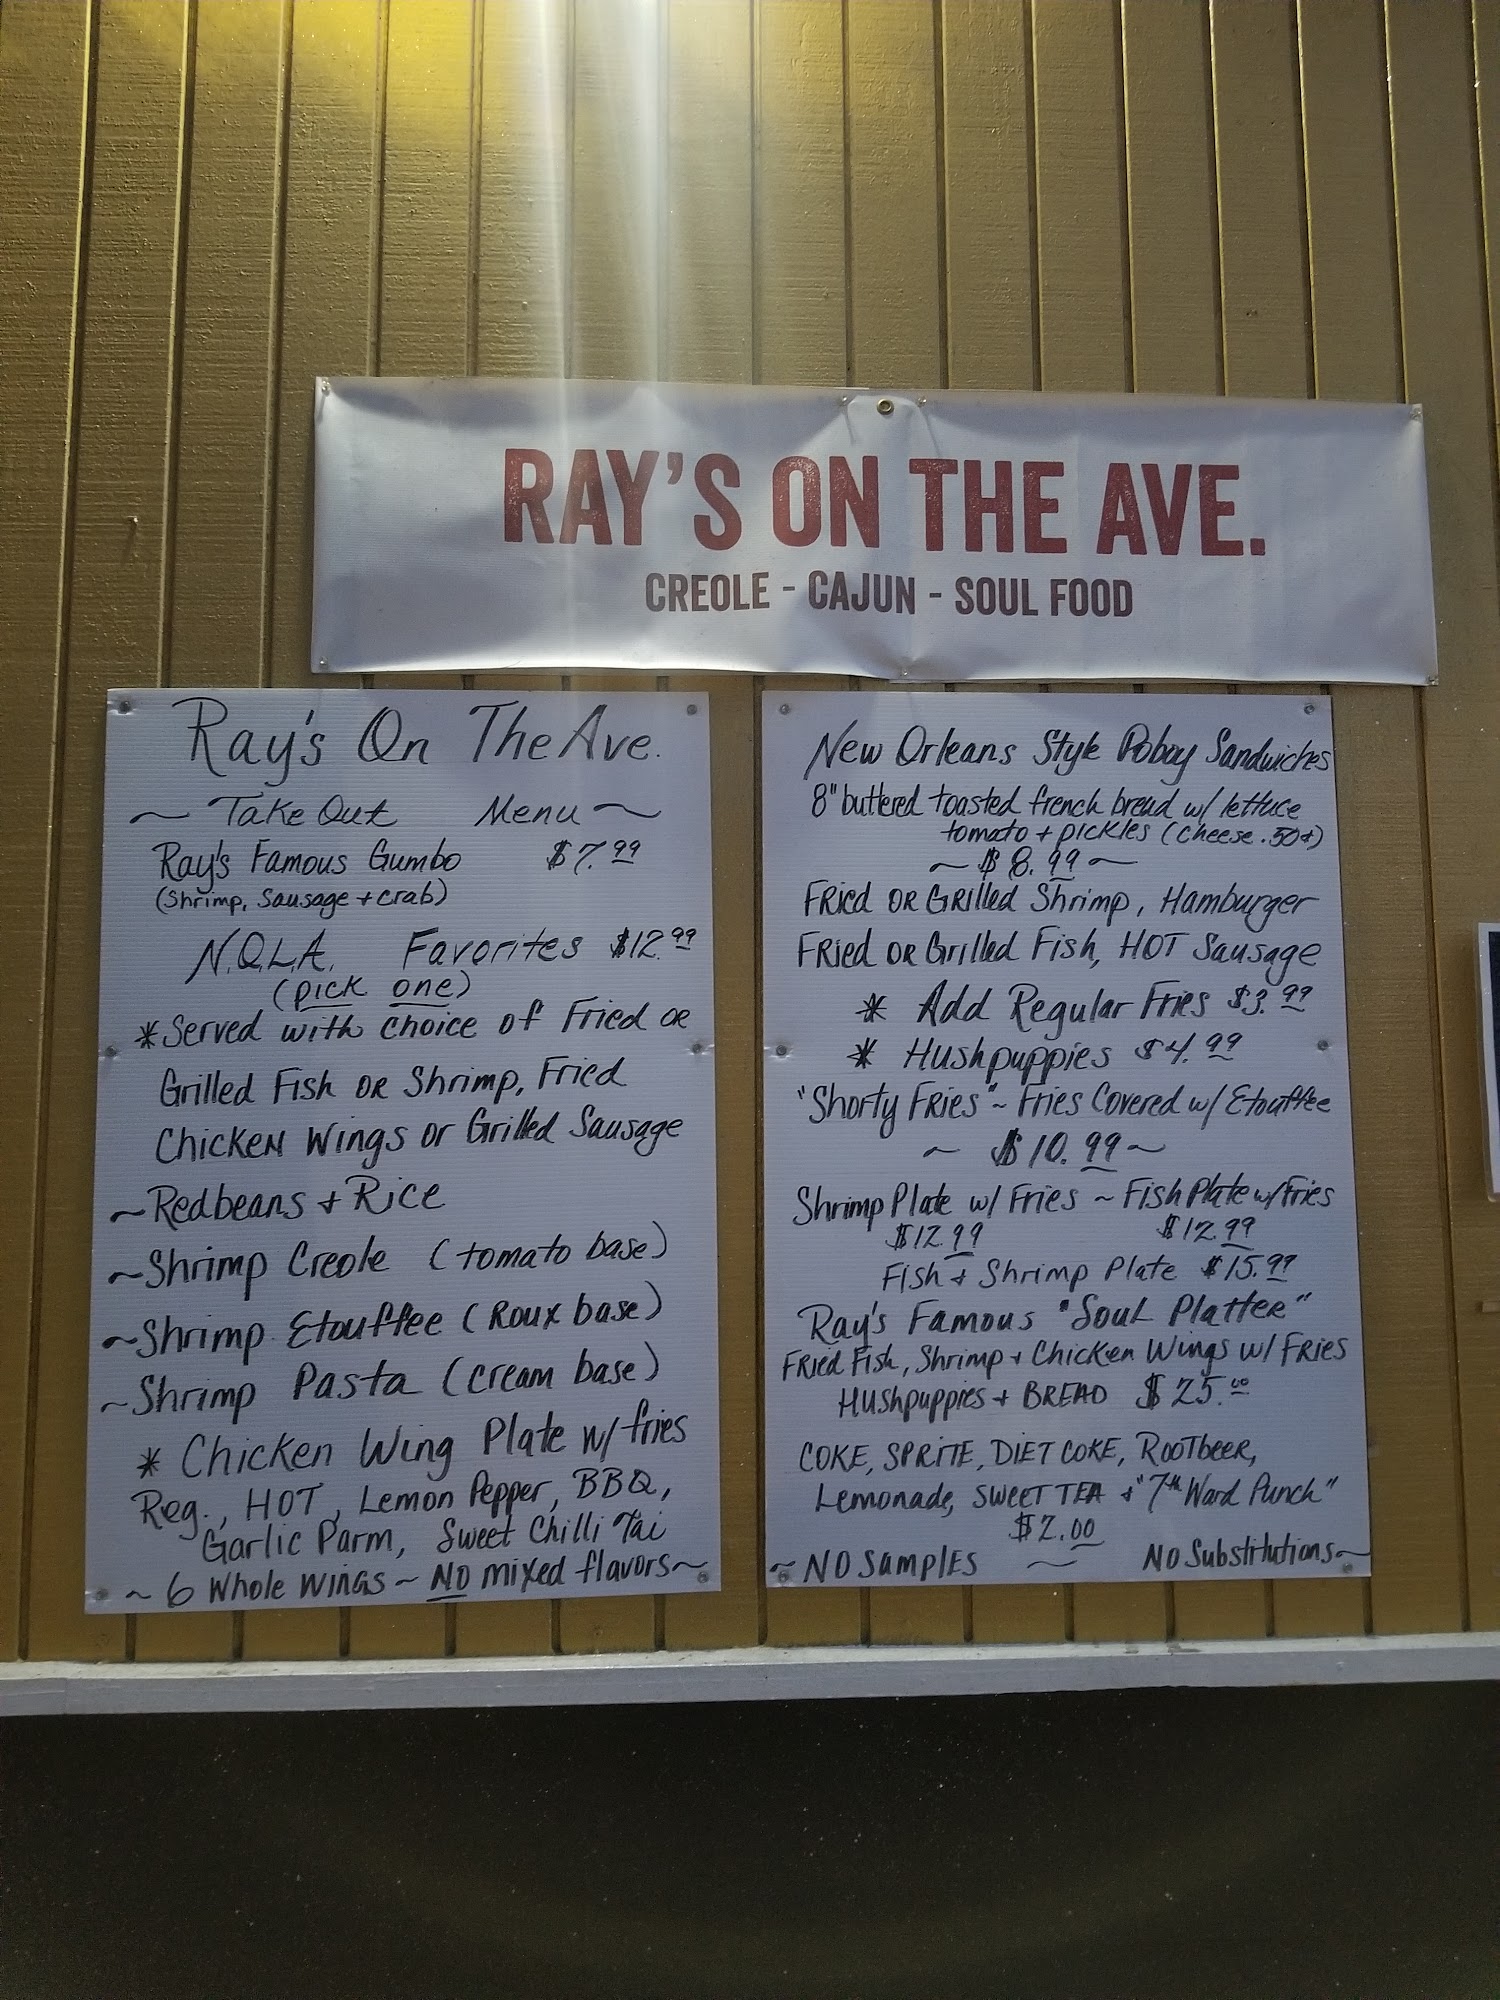 RAY'S ON THE AVE.
CREOLE - CAJUN - SOUL FOOD
Ray's On The Ave.
~ Take Out Menu ~
Ray's Famous Gumbo $7.99
(Shrimp, Sausage + crab)
N.O.L.A. Favorites $12.99
(pick one)
*Served with choice of Fried OR
Grilled Fish OR Shrimp, Fried
Chicken Wings or Grilled Sausage
~Redbeans + Rice
~Shrimp Creole (tomato base)
~Shrimp Etouffee (Roux base)
~Shrimp Pasta (cream base)
* Chicken Wing Plate w/ fries
Reg., HOT, Lemon Pepper, BBQ,
Garlic Parm, Sweet Chilli Tai
~ 6 Whole Wings ~ NO mixed flavors~
New Orleans Style Poboy Sandwiches
8" buttered toasted french bread w/ lettuce
tomato + pickles (cheese .50¢)
~ $8.99 ~
FRied OR GRilled Shrimp, Hamburger
FRied OR Grilled Fish, HOT Sausage
* Add Regular Fries $3.99
* Hushpuppies $4.99
"Shorty FRies" ~ Fries Covered w/ Etouffee
~ $10.99 ~
Shrimp Plate w/ Fries ~ Fish Plate w/ Fries
$12.99 $12.99
Fish + Shrimp Plate $15.99
Ray's Famous "Soul Platter"
FRied Fish, Shrimp + Chicken Wings w/ FRies
Hushpuppies + BREAD $25.00
COKE, SPRITE, DIET COKE, ROOTbeer,
Lemonade, SWEET TEA + "7th Ward Punch"
$2.00
~ NO SAMPLES ~ NO Substitutions~